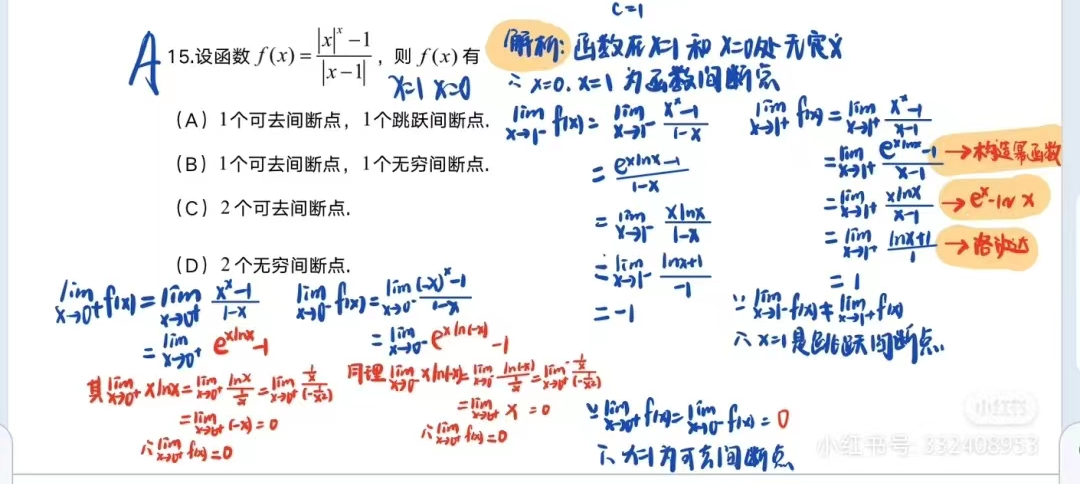 c=1
A
15.设函数 f(x)=(|x|^x-1)/|x-1|, 则 f(x) 有
x=1 x=0
(A) 1个可去间断点, 1个跳跃间断点.
(B) 1个可去间断点, 1个无穷间断点.
(C) 2个可去间断点.
(D) 2个无穷间断点.
解析: 函数在x=1和x=0处无定义
∴ x=0, x=1 为函数间断点
lim x→1⁻ f(x) = lim x→1⁻ (x^x-1)/(1-x)
= (e^(xlnx)-1)/(1-x)
= lim x→1⁻ xlnx/(1-x)
= lim x→1⁻ (lnx+1)/(-1)
= -1
lim x→1⁺ f(x) = lim x→1⁺ (x^x-1)/(x-1)
= lim x→1⁺ (e^(xlnx)-1)/(x-1) →构造幂函数
= lim x→1⁺ xlnx/(x-1) → e^x-1~x
= lim x→1⁺ (lnx+1)/1 →洛必达
= 1
∵ lim x→1⁻ f(x) ≠ lim x→1⁺ f(x)
∴ x=1是跳跃间断点.
lim x→0⁺ f(x) = lim x→0⁺ (x^x-1)/(1-x)
= lim x→0⁺ e^(xlnx)-1
其 lim x→0⁺ xlnx = lim x→0⁺ lnx/(1/x) = lim x→0⁺ (1/x)/(-1/x²)
= lim x→0⁺ (-x) = 0
∴ lim x→0⁺ f(x) = 0
lim x→0⁻ f(x) = lim x→0⁻ ((-x)^x-1)/(1-x)
= lim x→0⁻ e^(xln(-x))-1
同理 lim x→0⁻ xln(-x) = lim x→0⁻ ln(-x)/(1/x) = lim x→0⁺ -(1/x)/(-1/x²)
= lim x→0⁺ x = 0
∴ lim x→0⁺ f(x) = 0
∵ lim x→0⁺ f(x) = lim x→0⁻ f(x) = 0
∴ x=1为可去间断点
小红书
小红书号: 332408953